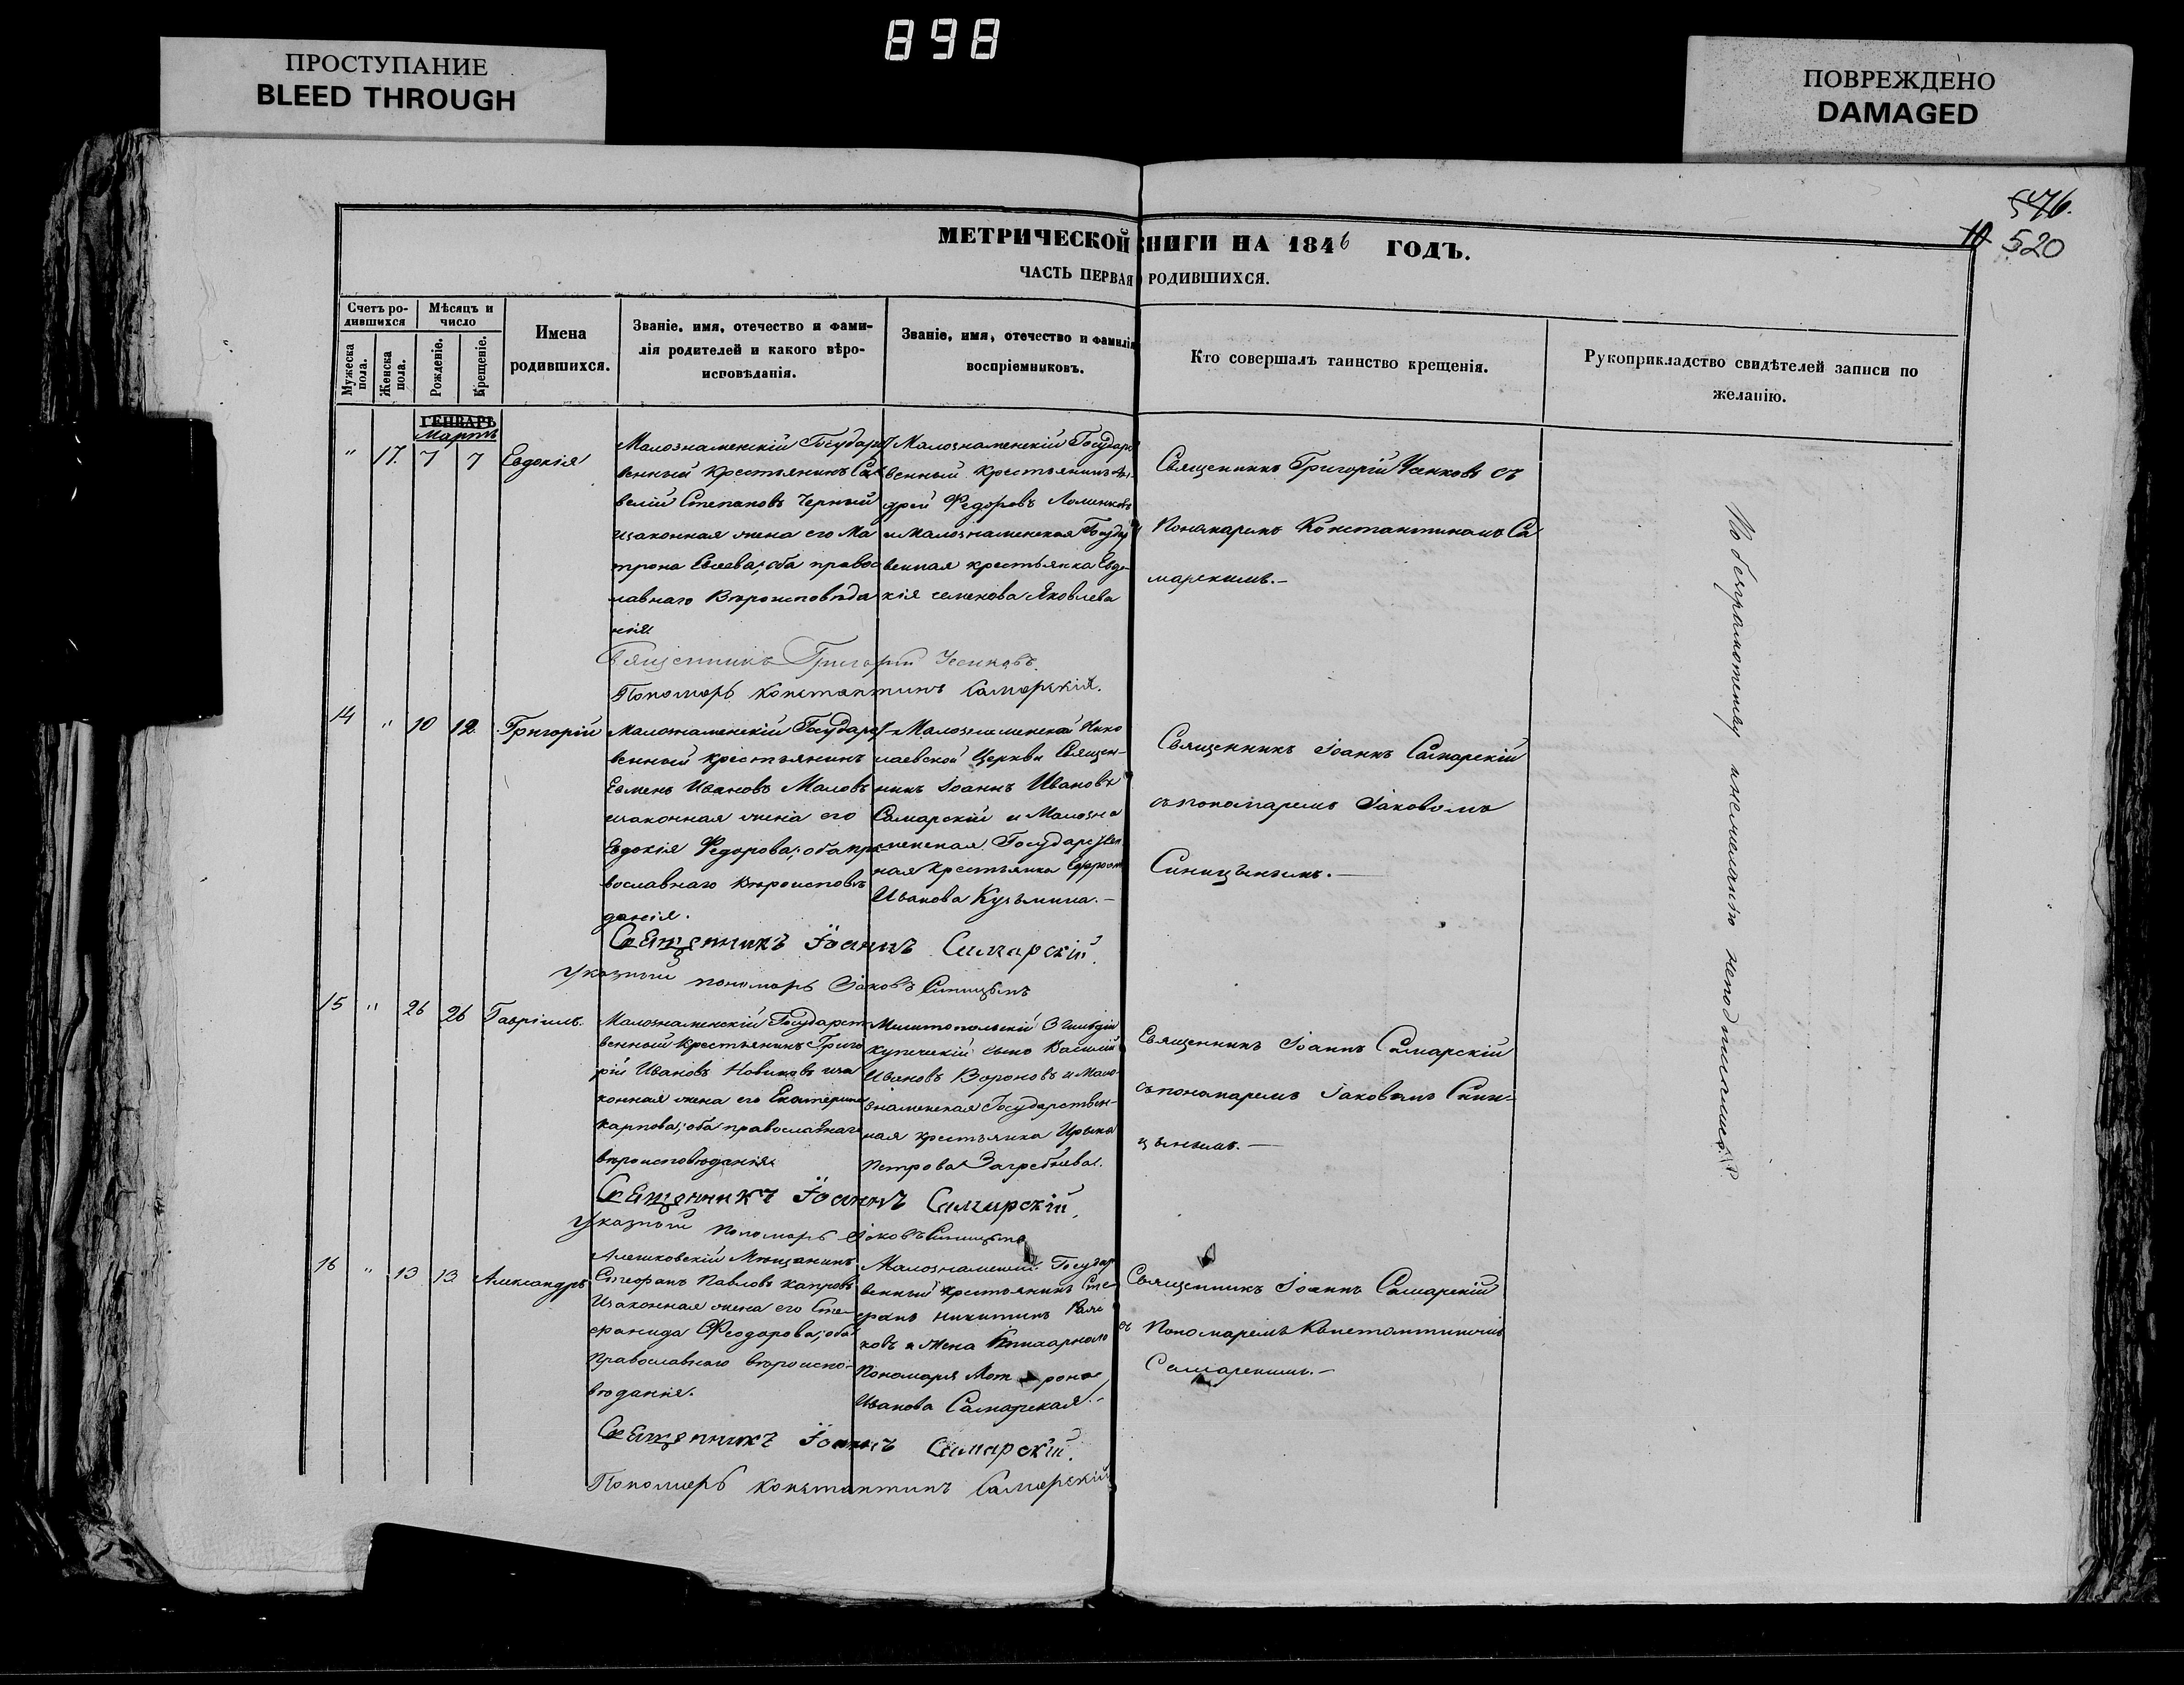 898
ПРОСТУПАНИЕ
BLEED THROUGH
ПОВРЕЖДЕНО
DAMAGED
576.
520
МЕТРИЧЕСКОЙ КНИГИ НА 1846 ГОДЪ.
ЧАСТЬ ПЕРВАЯ РОДИВШИХСЯ.
Счетъ ро-
дившихся
Мужеска
пола.
Женска
пола.
Мѣсяцъ и
число
Рожденіе.
Крещеніе.
Имена
родившихся.
Званіе, имя, отечество и фами-
лія родителей и какого вѣро-
исповѣданія.
Званіе, имя, отечество и фамилія
воспріемниковъ.
Кто совершалъ таинство крещенія.
Рукоприкладство свидѣтелей записи по
желанію.
ГЕНВАРЬ
Мартъ
" 17. 7 7 Евдокія
Малознаменскій Государст
венный крестьянинъ Са
велій Степановъ Черный
изаконная жена его Ма
трона Евсева; оба правос
лавнаго Вѣроисповѣда
нія
Малознаменскій Государс
венный крестьянинъ Ан
дрей Федоровъ Логиновъ
и Малознаменская Государ
венная крестьянка Евдо
кія семенова Яковлева
Священникъ Григорій Усенковъ съ
Пономаремъ Константиномъ Са
марскимъ.-
Священникъ Григорій Усенковъ.
Пономарь Константинъ Самарскій.
14 " 10 12 Григорій
Малознаменскій Государст
венный крестьянинъ
Евмень Ивановъ Маловъ
изаконная жена его
Евдокія Федорова; оба пра
вославнаго вѣроисповѣ
данія.
Малознаменской Нико
лаевской Церкви Священ-
никъ Іоаннъ Ивановъ
Самарскій и Малозна
менская Государствен
ная крестьянка
Иванова Кузьмина.-
Священникъ Іоаннъ Самарскій
съ пономаремъ Іаковомъ
Синицынымъ.-
Священникъ Іоаннъ Самарскій.
Указный пономарь Іаковъ Синицынъ
15 " 26 26 Гавріилъ.
Малознаменскій Государст
венный Крестьянинъ Григо
рій Ивановъ Новиковъ иза
конная жена его Екатерина
Карпова; оба православнаго
вѣроисповѣданія.
Мелитопольскій 3 гильдіи
купеческій сынъ Василій
Ивановъ Вороновъ и Мало-
знаменская Государствен-
ная крестьянка Ирина
Петрова Загребнева.
Священникъ Іоаннъ Самарскій
съ пономаремъ Іаковомъ Сини-
цынымъ.-
Священникъ Іоаннъ Самарскій.
Указный пономарь Іаковъ Синицынъ
16 " 13 13 Александръ
Алешковскій Мѣщанинъ
Стефанъ Павловъ
Изаконная жена его Сте-
фанида Феодорова; оба
Православнаго вѣроиспо-
вѣданія.
Малознаменскій Государ
венный крестьянинъ Сте
фанъ Никитинъ
ковъ и Жена
Пономаря Мотрона
Иванова Самарская.-
Священникъ Іоаннъ Самарскій
съ Пономаремъ Константиномъ
Самарскимъ.-
Священникъ Іоаннъ Самарскій.
Пономарь Константинъ Самарскій
По безграмотству и нежеланію неподписались.